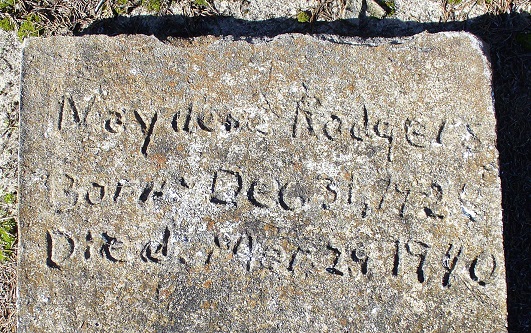 Maydene Rodgers
Born Dec 31, 192
Died. Mar. 29 1940